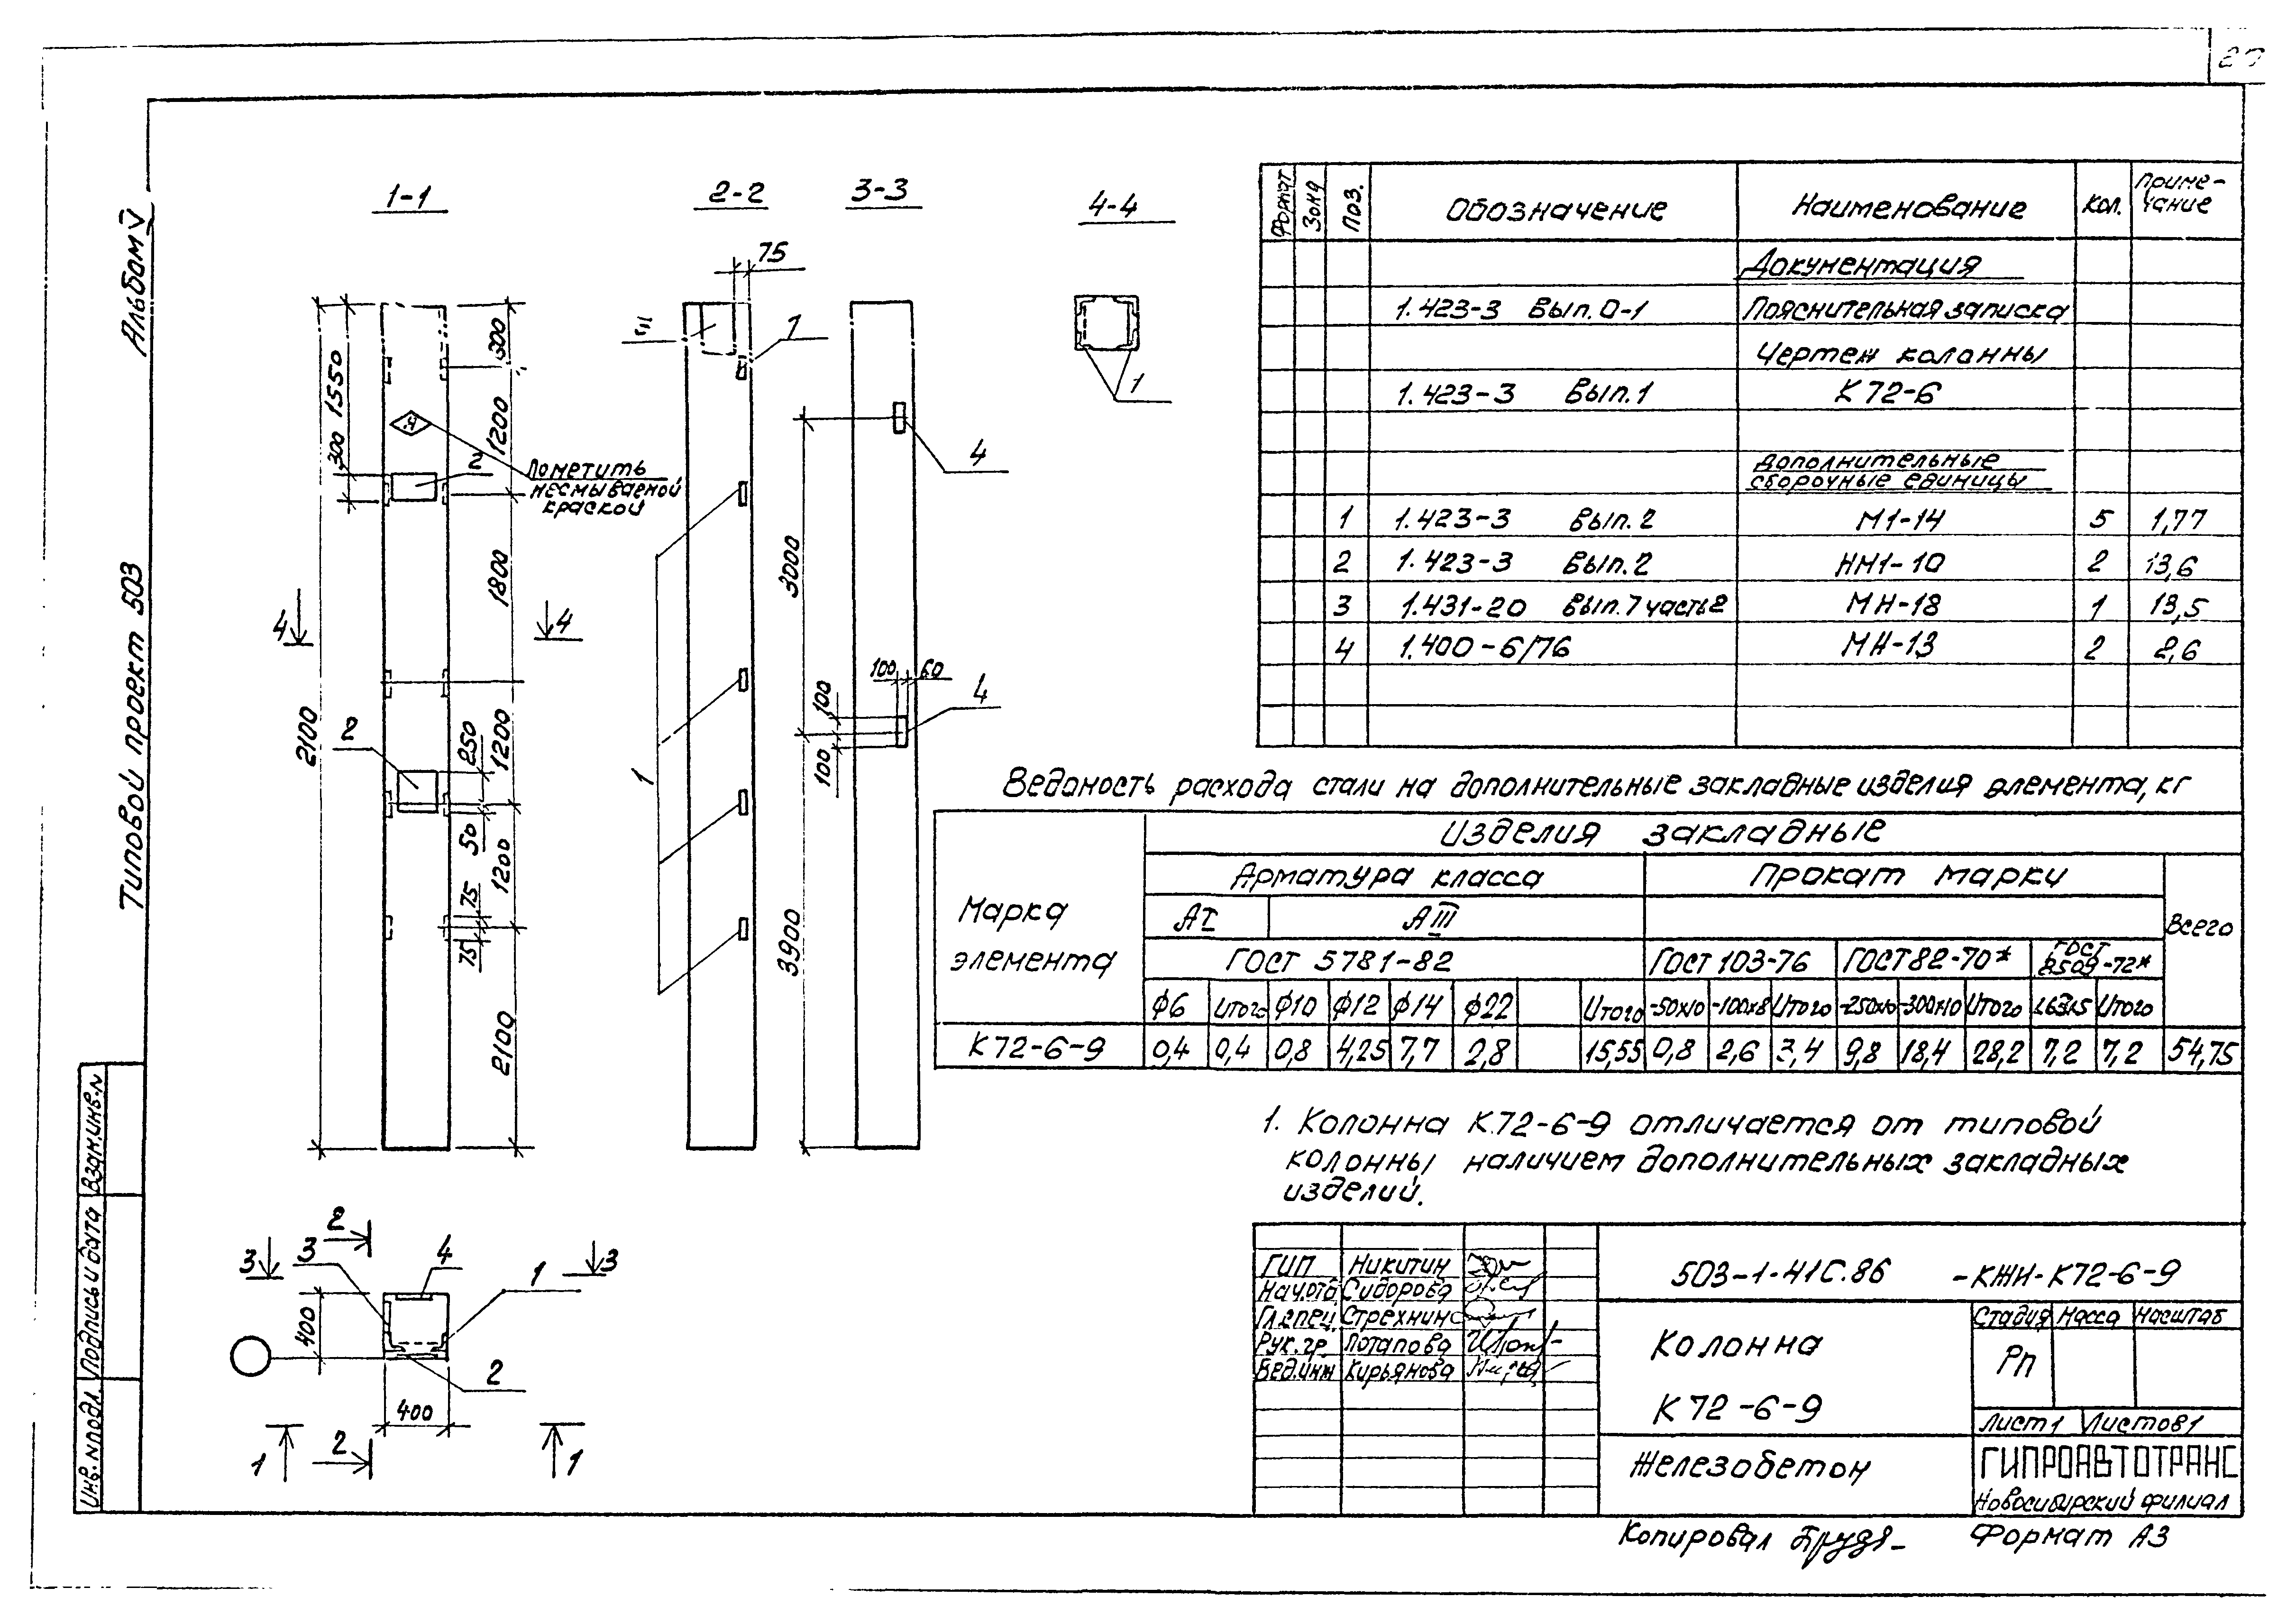 Альбом V
Типовой проект 503
Взам.инв.N
Подпись и дата
Инв. N подл.
1-1
2-2
3-3
4-4
75
300
1550
1200
300
2
Пометить
несмываемой
краской
1800
4
4
2100
2
250
1200
50
1200
75
75
2100
3
1
1
3000
3900
4
100
60
100
100
4
1
2
3
3
4
1
3
400
2
400
1
2
1
Формат
Зона
Поз.
Обозначение
Наименование
Кол.
Приме-
чание
Документация
1.423-3 Вып.0-1 Пояснительная записка
Чертеж колонны
1.423-3 Вып.1 К 72-6
Дополнительные
сборочные единицы
1 1.423-3 Вып.2 М1-14 5 1,77
2 1.423-3 Вып.2 НМ1-10 2 13,6
3 1.431-20 Вып.7 часть 2 МН-18 1 13,5
4 1.400-6/76 МН-13 2 2,6
Ведомость расхода стали на дополнительные закладные изделия элемента, кг
Марка
элемента
Изделия закладные
Арматура класса
Прокат марки
Всего
АI
АIII
ГОСТ 5781-82
ГОСТ 103-76
ГОСТ 82-70*
ГОСТ
8509-72*
ф6 Итого ф10 ф12 ф14 ф22 Итого -50х10 -100х8 Итого -250х10 -300х10 Итого L63х5 Итого
К 72-6-9 0,4 0,4 0,8 4,25 7,7 2,8 15,55 0,8 2,6 3,4 9,8 18,4 28,2 7,2 7,2 54,75
1. Колонна К 72-6-9 отличается от типовой
колонны наличием дополнительных закладных
изделий.
ГИП Никитин
Нач.отд Сидорова
Гл.спец. Стрехнин
Рук.гр. Потапова
Вед.инж Кирьянова
503-1-41С.86 -КЖИ-К72-6-9
Колонна
К 72-6-9
Стадия Масса Масштаб
Рп
Лист 1 Листов 1
Железобетон
ГИПРОАВТОТРАНС
Новосибирский филиал
Копировал
Формат А3